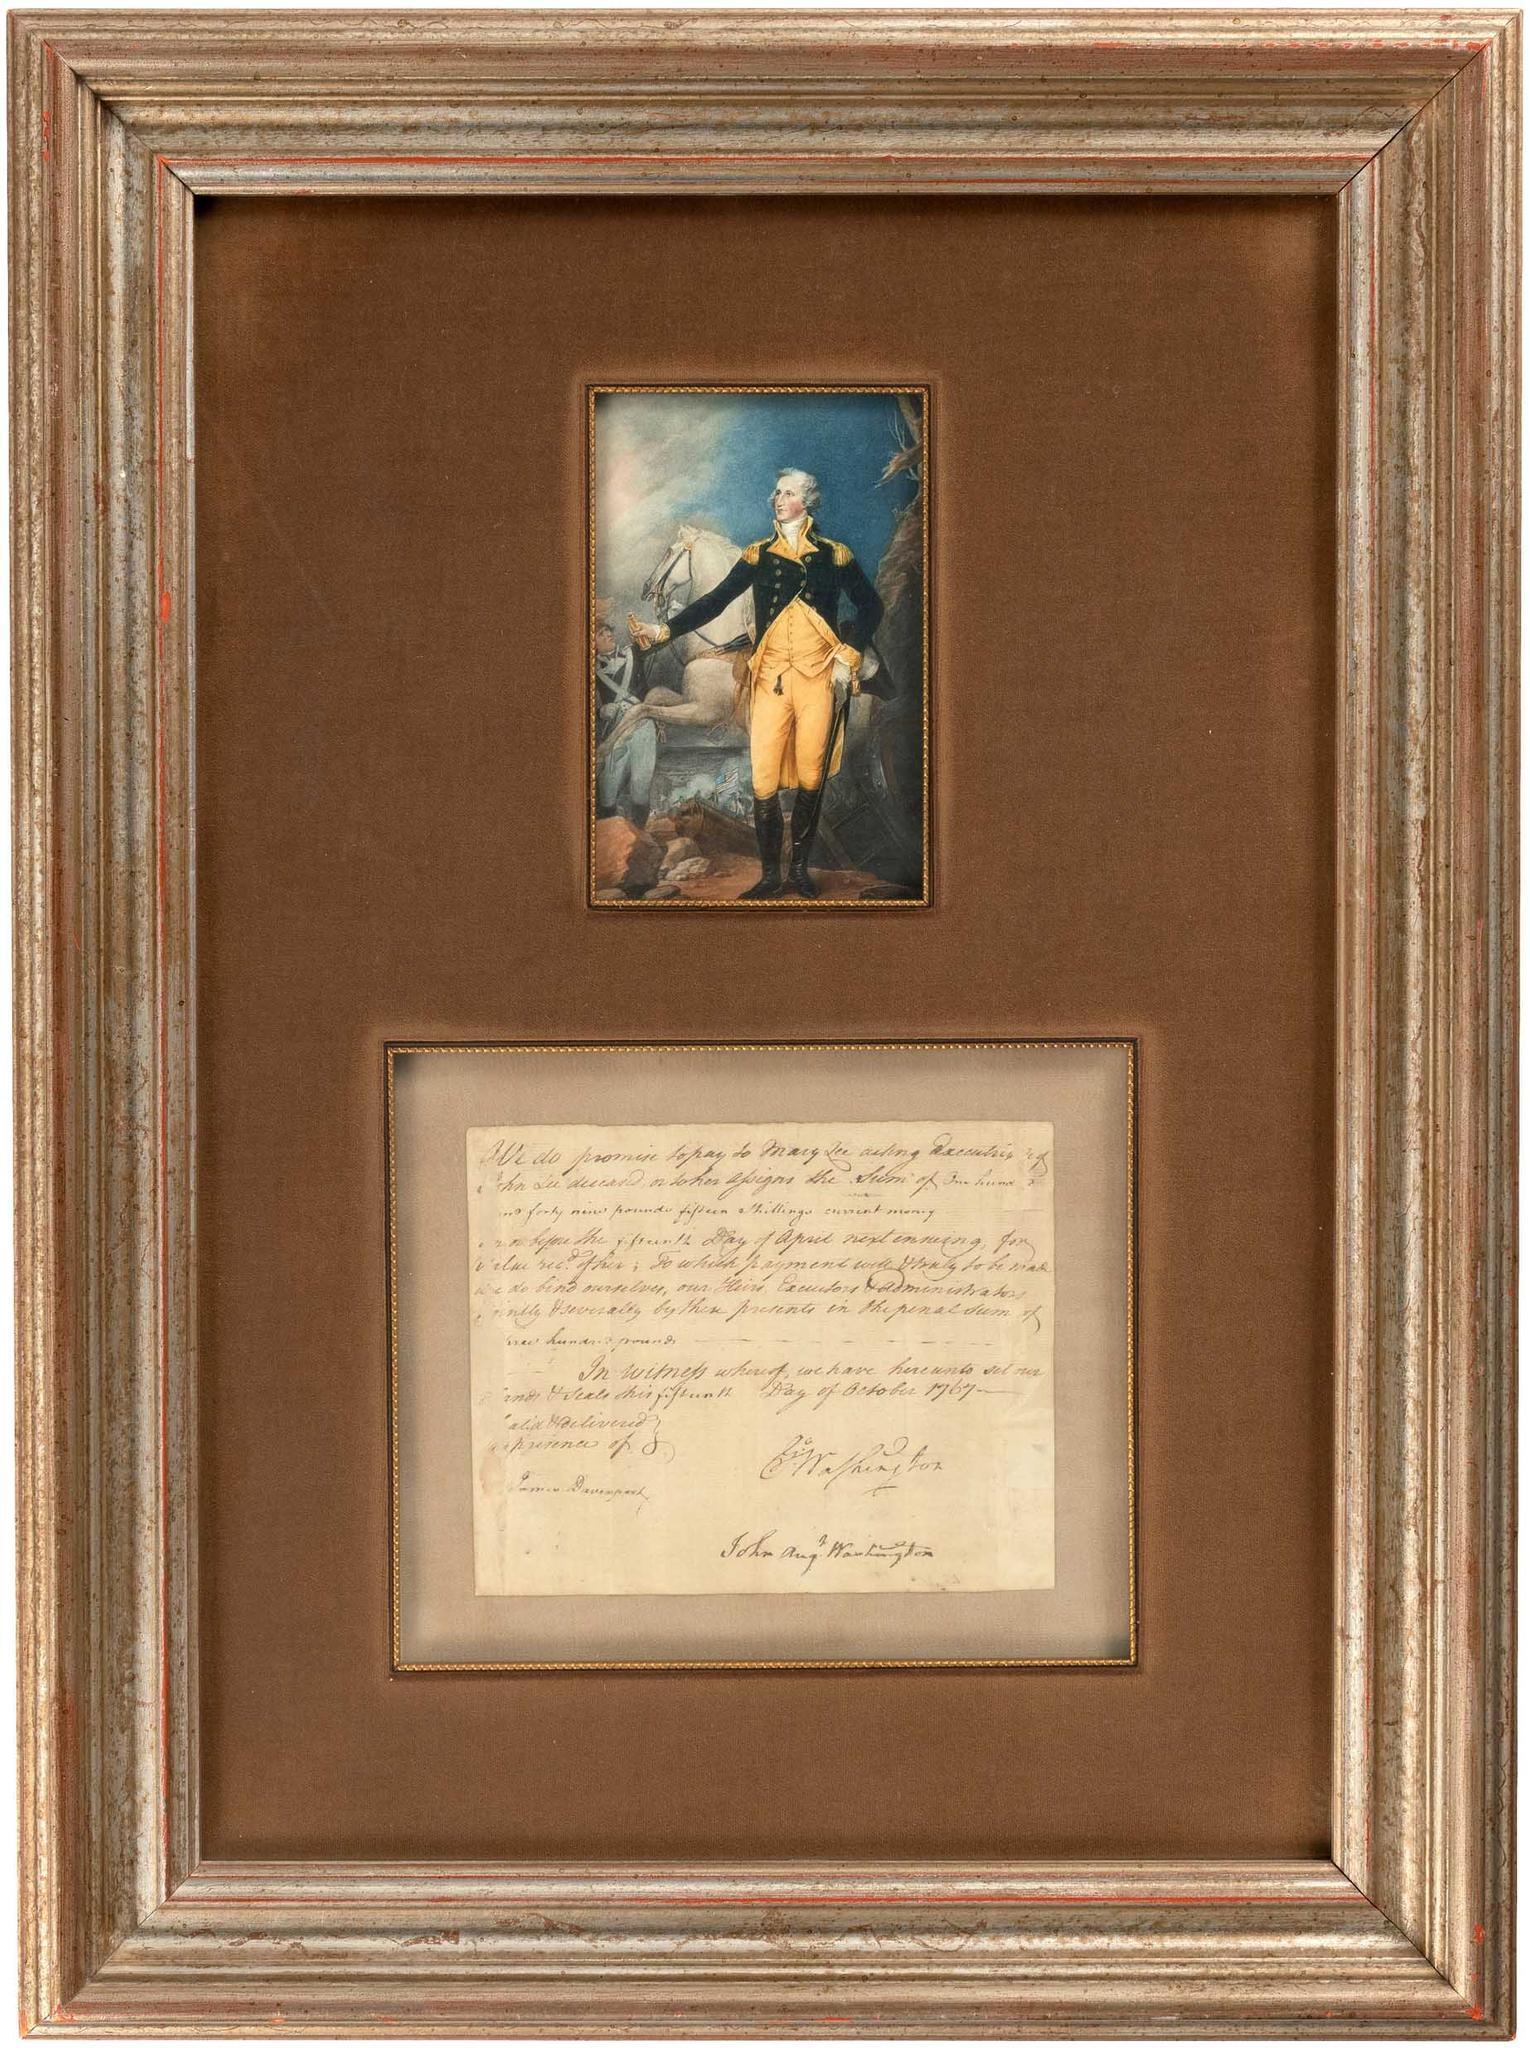 We do promise to pay to Mary Lee acting Executrix of
John Lee deceasd, or to her assigns the Sum of One hund
and forty nine pounds fifteen Shillings current money
on or before the fifteenth Day of April next ensueing, for
value rec.d of her; To which payment well & truly to be made
we do bind ourselves, our Heirs, Executors & Administrators
jointly & severally by these presents in the penal Sum of
three hundred pounds
In witness whereof, we have hereunto set our
hands & Seals this fifteenth Day of October 1767
& delivered
presence of
James Davenport
Washington
John Augt. Washington